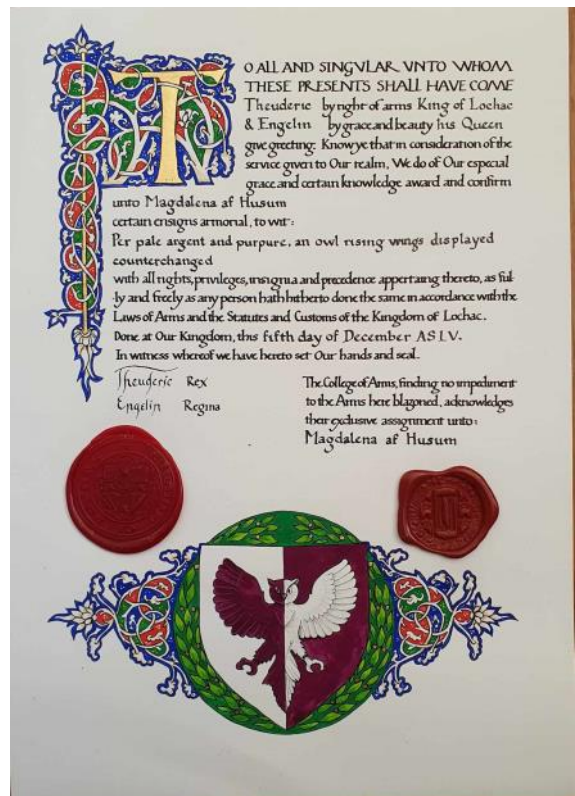 TO ALL AND SINGVLAR VNTO WHOM
THESE PRESENTS SHALL HAVE COME
Theuderic by right of arms King of Lochac
& Engelin by grace and beauty his Queen
give greeting. Know ye that in consideration of the
service given to Our realm, We do of Our especial
grace and certain knowledge award and confirm
unto Magdalena af Husum
certain ensigns armorial, to wit:
Per pale argent and purpure, an owl rising wings displayed
counterchanged
with all rights, privileges, insignia and precedence appertaing thereto, as ful-
ly and freely as any person hath hitherto done the same in accordance with the
Laws of Arms and the Statutes and Customs of the Kingdom of Lochac.
Done at Our Kingdom, this fifth day of December AS LV.
In witness whereof we have hereto set Our hands and seal.
Theuderic Rex
Engelin Regina
The College of Arms, finding no impediment
to the Arms here blazoned, acknowledges
their exclusive assignment unto:
Magdalena af Husum